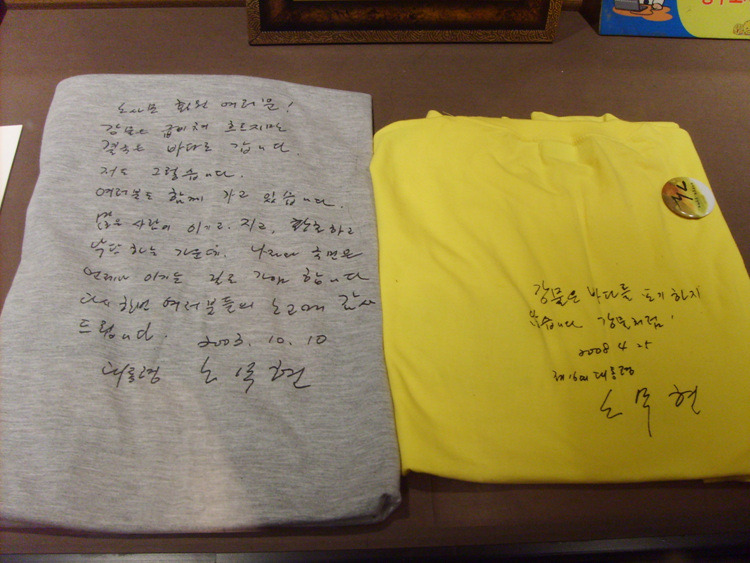 노사모 회원 여러분!
강물은 굽이쳐 흐르지만
결국은 바다로 갑니다.
저도 그렇습니다.
여러분도 함께 가고 있습니다.
많은 사람이 이기고, 지고, 환호하고
낙담하는 가운데, 나라와 국민은
언제나 이기는 길로 가야 합니다
다시 한번 여러분들의 노고에 감사
드립니다. 2003. 10. 10
대통령 노무현
강물은 바다를 포기하지
않습니다 강물처럼!
2008 4 25
제16대 대통령
노무현